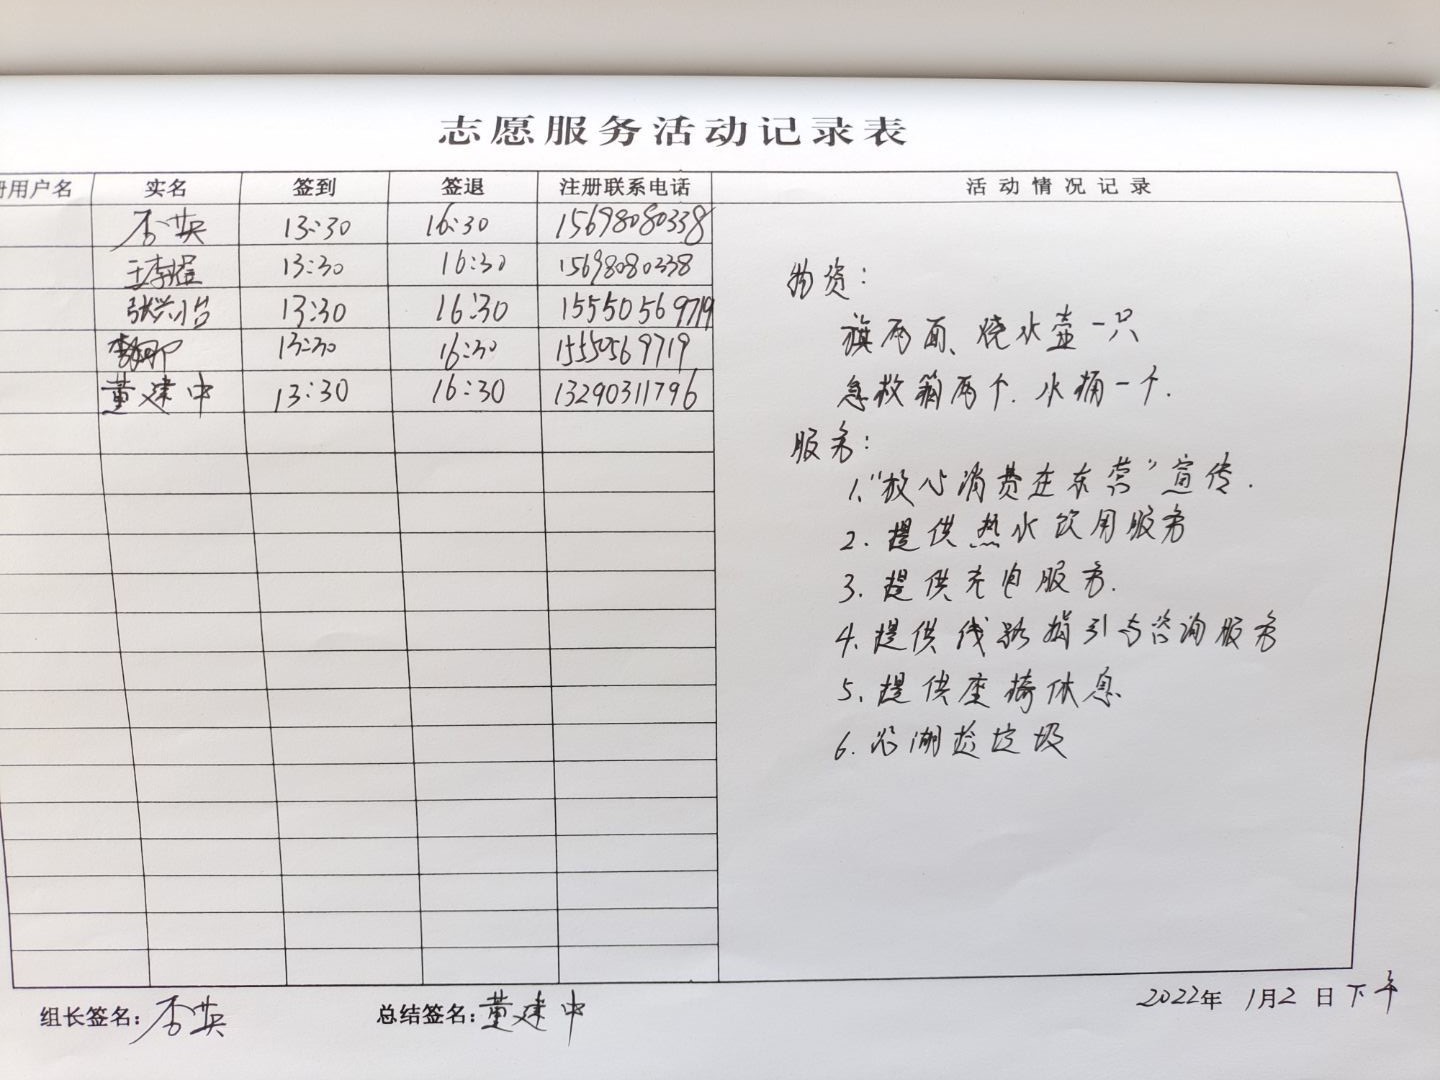 志愿服务活动记录表
册用户名 实名 签到 签退 注册联系电话 活动情况记录
李英 13:30 16:30 15698080338
13:30 16:30 15698080338
张兴怡 13:30 16:30 15550569719
李娜 13:30 16:30 15550569719
董建中 13:30 16:30 13290311796
物资:
旗两面、烧水壶一只
急救箱两个.水桶一个.
服务:
1.“放心消费在东营”宣传.
2.提供热水饮用服务
3.提供充电服务.
4.提供线路指引与咨询服务
5.提供座椅休息
6.沿湖捡垃圾
组长签名:李英 总结签名:董建中 2022年1月2日下午